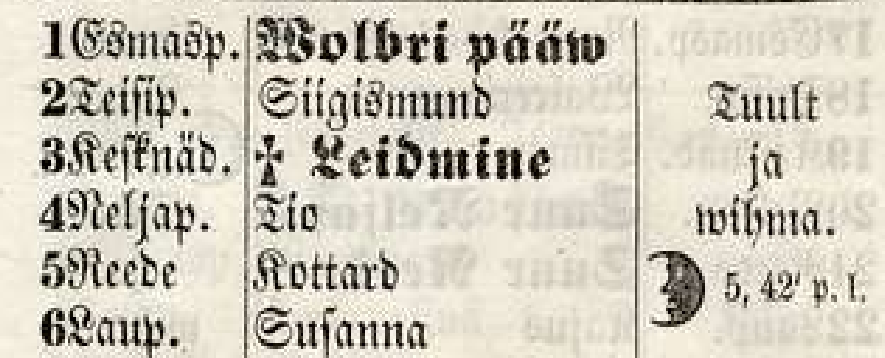 1 Esmasp. Wolbri pääw
2 Teisip. Siigismund Tuult
3 Kesknäd. † Leidmine ja
4 Neljap. Tio wihma.
5 Reede Kottard 5, 42' p. l.
6 Laup. Susanna